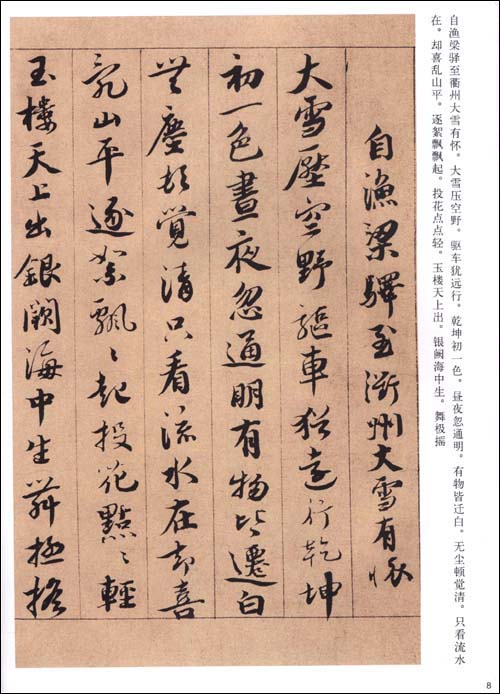 自渔梁驿至衢州大雪有怀。大雪压空野。驱车犹远行。乾坤初一色。昼夜忽通明。有物皆迁白。无尘顿觉清。只看流水
在。却喜乱山平。逐絮飘飘起。投花点点轻。玉楼天上出。银阙海中生。舞极摇
自漁梁驛至衢州大雪有懷
大雪壓空野驅車猶遠行乾坤
初一色晝夜忽通明有物皆遷白
無塵頓覺清只看流水在却喜
亂山平逐絮飄〻起投花點〻輕
玉樓天上出銀闕海中生舞極搖
8